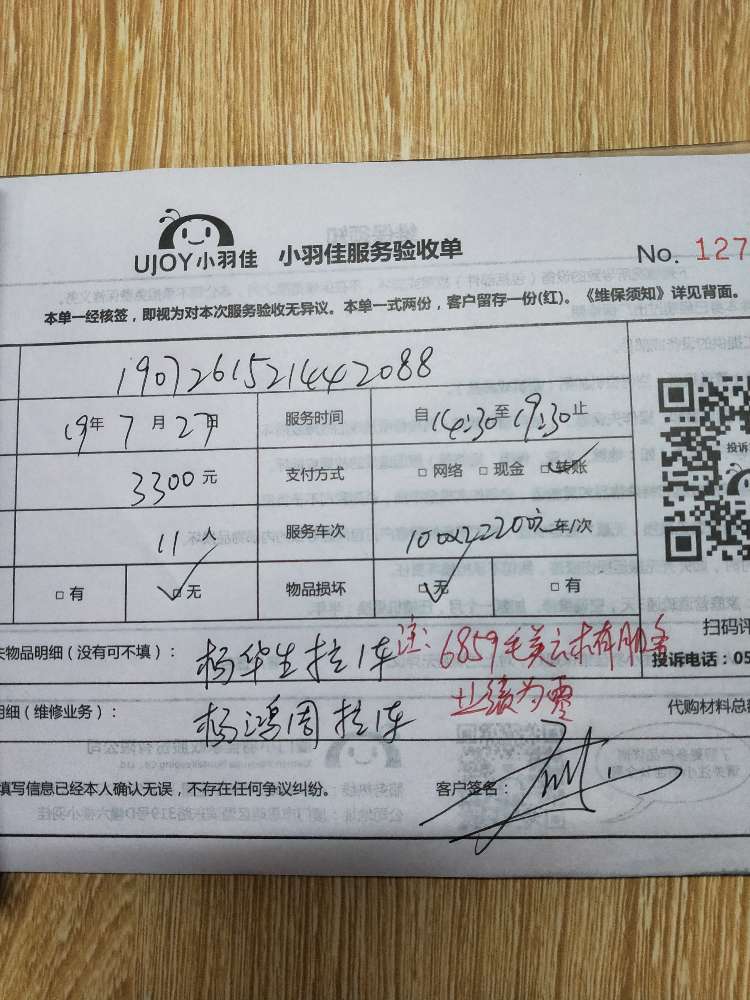 UJOY小羽佳 小羽佳服务验收单 No. 127
本单一经核签，即视为对本次服务验收无异议。本单一式两份，客户留存一份(红)。《维保须知》详见背面。
1907261521442088
19年 7 月 27日 服务时间 自14:30至19:30止
3300元 支付方式 □ 网络 □ 现金 □ 转账
11 人 服务车次 100x2 220元 车/次
□ 有 □ 无 物品损坏 □ 无 □ 有
扫码评
失物品明细（没有可不填）： 杨华生拉1车 注：6859毛 没有服务 投诉电话：05
业绩为零
明细（维修业务）： 杨鸿周拉1车 代购材料总额
填写信息已经本人确认无误，不存在任何争议纠纷。 客户签名：
投诉